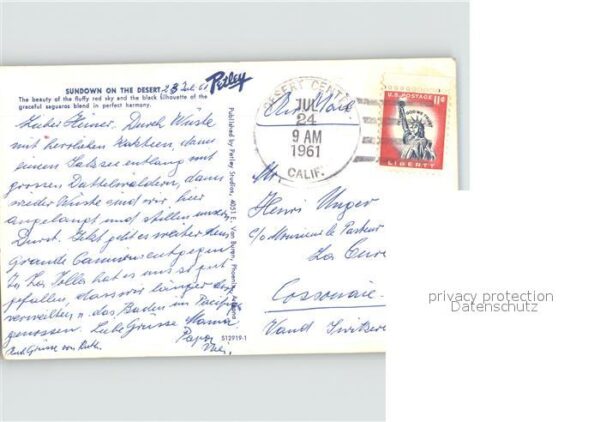 SUNDOWN ON THE DESERT 23 Juli 61
The beauty of the fluffy red sky and the black silhouette of the
graceful seguaros blend in perfect harmony.
Petley
Lieber Heiner. Durch Wüste
mit herrlichen Kakteen, dann
einem Salzsee entlang mit
grossen Dattelwäldern, dann
wieder Wüste sind wir hier
angelangt und stillen unsern
Durst. Jetzt geht es weiter dem
Grande Canyon entgegen
In La Jolla hat es uns so gut
gefallen, dass wir länger dort
verweilten u. das Baden im Pacific
genossen. Liebe Grüsse Mama
Papa
Grüsse von
512919-1
Published by Petley Studios, 4051 E. Van Buren, Phoenix, Arizona
DESERT CENTER
JUL
24
9 AM
1961
CALIF.
Air Mail
U.S. POSTAGE 11¢
IN GOD WE TRUST
LIBERTY
Mr.
Henri Unger
c/o Monsieur le Pasteur
La Cure
Cossonay
Vaud Switzer
privacy protection
Datenschutz